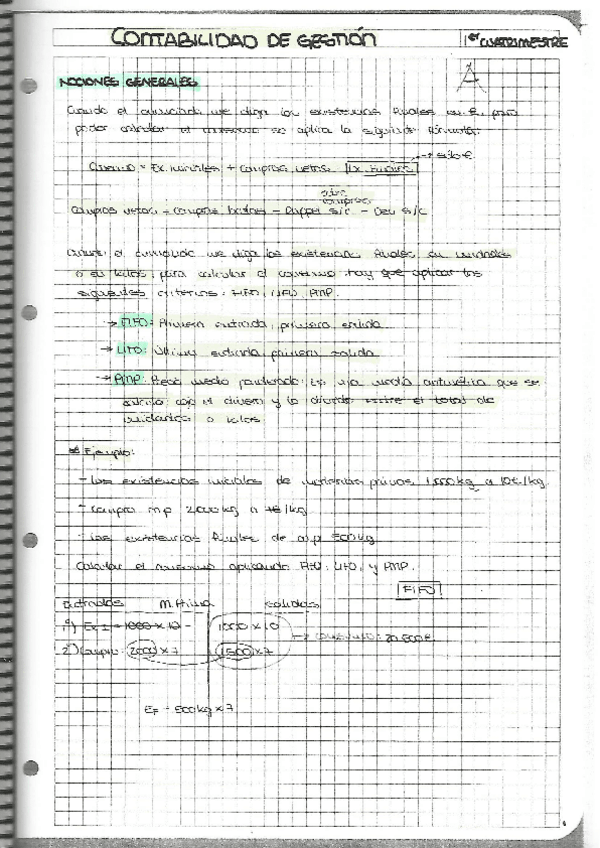 CONTABILIDAD DE GESTIÓN
1er CUATRIMESTRE
NOCIONES GENERALES
Cuando el enunciado me diga las existencias finales en €, para
poder calcular el consumo se aplica la siguiente fórmula:
→ sólo €
Consumo = Ex. iniciales + compras netas - Ex. finales
sobre
compras
Compras netas = compras brutas - Rappel s/c - Dev s/c
Cuando el enunciado me diga las existencias finales en unidades
o en kilos, para calcular el consumo hay que aplicar los
siguientes criterios: FIFO, LIFO, PMP.
→ FIFO: Primera entrada, primera salida
→ LIFO: Última entrada, primera salida
→ PMP: Precio medio ponderado. Es una media aritmética que se
calcula con el dinero y lo divido entre el total de
unidades o kilos.
Ejemplo:
- Las existencias iniciales de materias primas 1.000 kg a 10€/kg.
- Compra mp 2000 kg a 7€/kg
- Las existencias finales de m.p 500 kg
Calcular el consumo aplicando FIFO, LIFO, y PMP.
FIFO
Entradas M. Prima Salidas
1º) Ex I = 1000 × 10 - 1000 × 10
→ Consumo: 20.500€
2º) Compra: 2000 × 7 1500 × 7
EF = 500 kg × 7